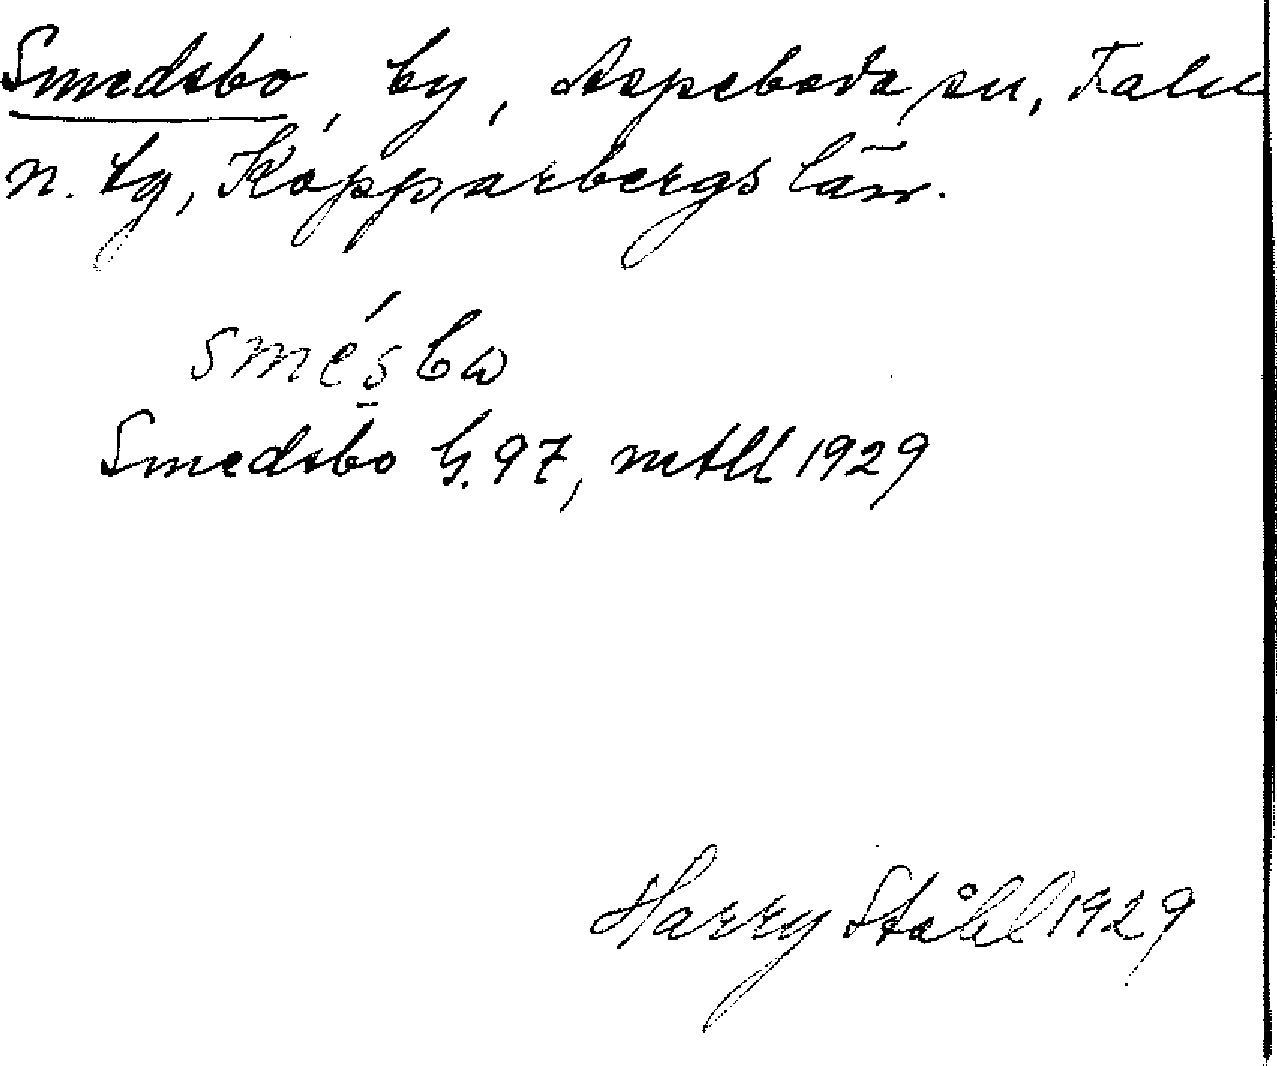 Smedsbo, by, Aspeboda sn, Falu
n. tg, Kopparbergs län.
smésbω
Smedsbo G. 97, mtll 1929
Harry Ståhl 1929